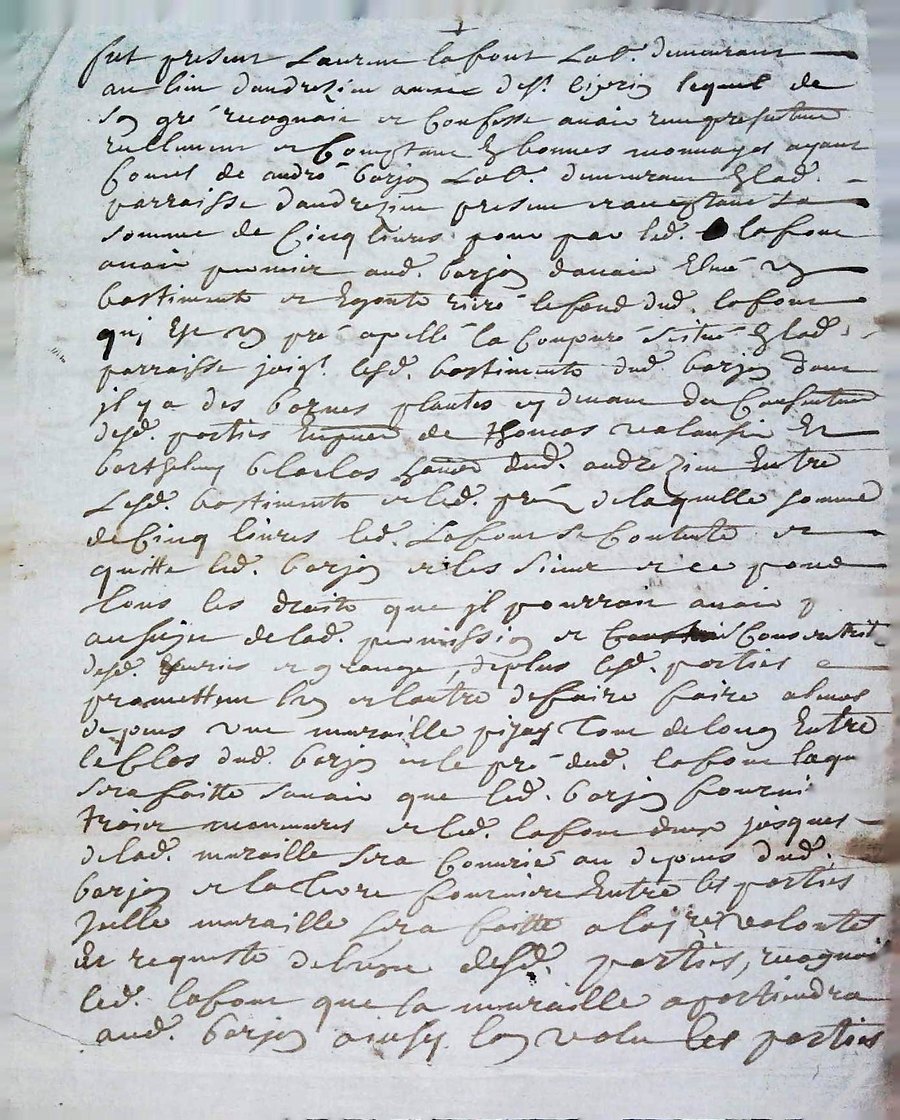 fut present Laurent lafont Lab.r demeurant
au lieu dandrezieu annexe de S.t Ciprien lequel de
son gré recognoit et Confesse avoir receu presentement
reellement et Comptant En bonnes monnoyes ayant
Cours de andré barjon Lab.r demeurant En lad.
parroisse dandrezieu present et acceptant La
somme de Cinq livres pour par led. lafont
avoir permis aud. barjon davoir Elevé un
bastiments et Egouts riere le fond dud. lafont
qui Est un pré apellé la Coupure scitué En lad.
parroisse joig.t lesd. bastiments dud. barjon dont
il y a des bornes plantes cy devant du Consentement
desd. parties En presence de thomas valansin Et
barthelmy dud. andrezieu Entre
Lesd. bastiments et led. pré de laquelle somme
de Cinq livres led. Lafont se Contente et
quitte led. barjon et les siens et ce pour
tous les droits que jl pourroit avoir
au sujet de lad. permission et Construit
desd. Ecuries et grange, de plus lesd. parties
promettent lun et lautre de faire faire a leurs
depens une muraille pizay tout de long Entre
le clos dud. barjon et le pré dud. lafont laqu
sera faitte savoir que led. barjon fourni
trois manoeuvres et led. lafont deux jusques
de lad. muraille sera Couverte au depens dud.
barjon et la terre fourniere Entre les parties
Jcelle muraille sera faitte a la volonté
Et requeste de lune desd. parties, recognoi
led. lafont que la muraille apartiendra
aud. barjon ainsy lon voulu les parties